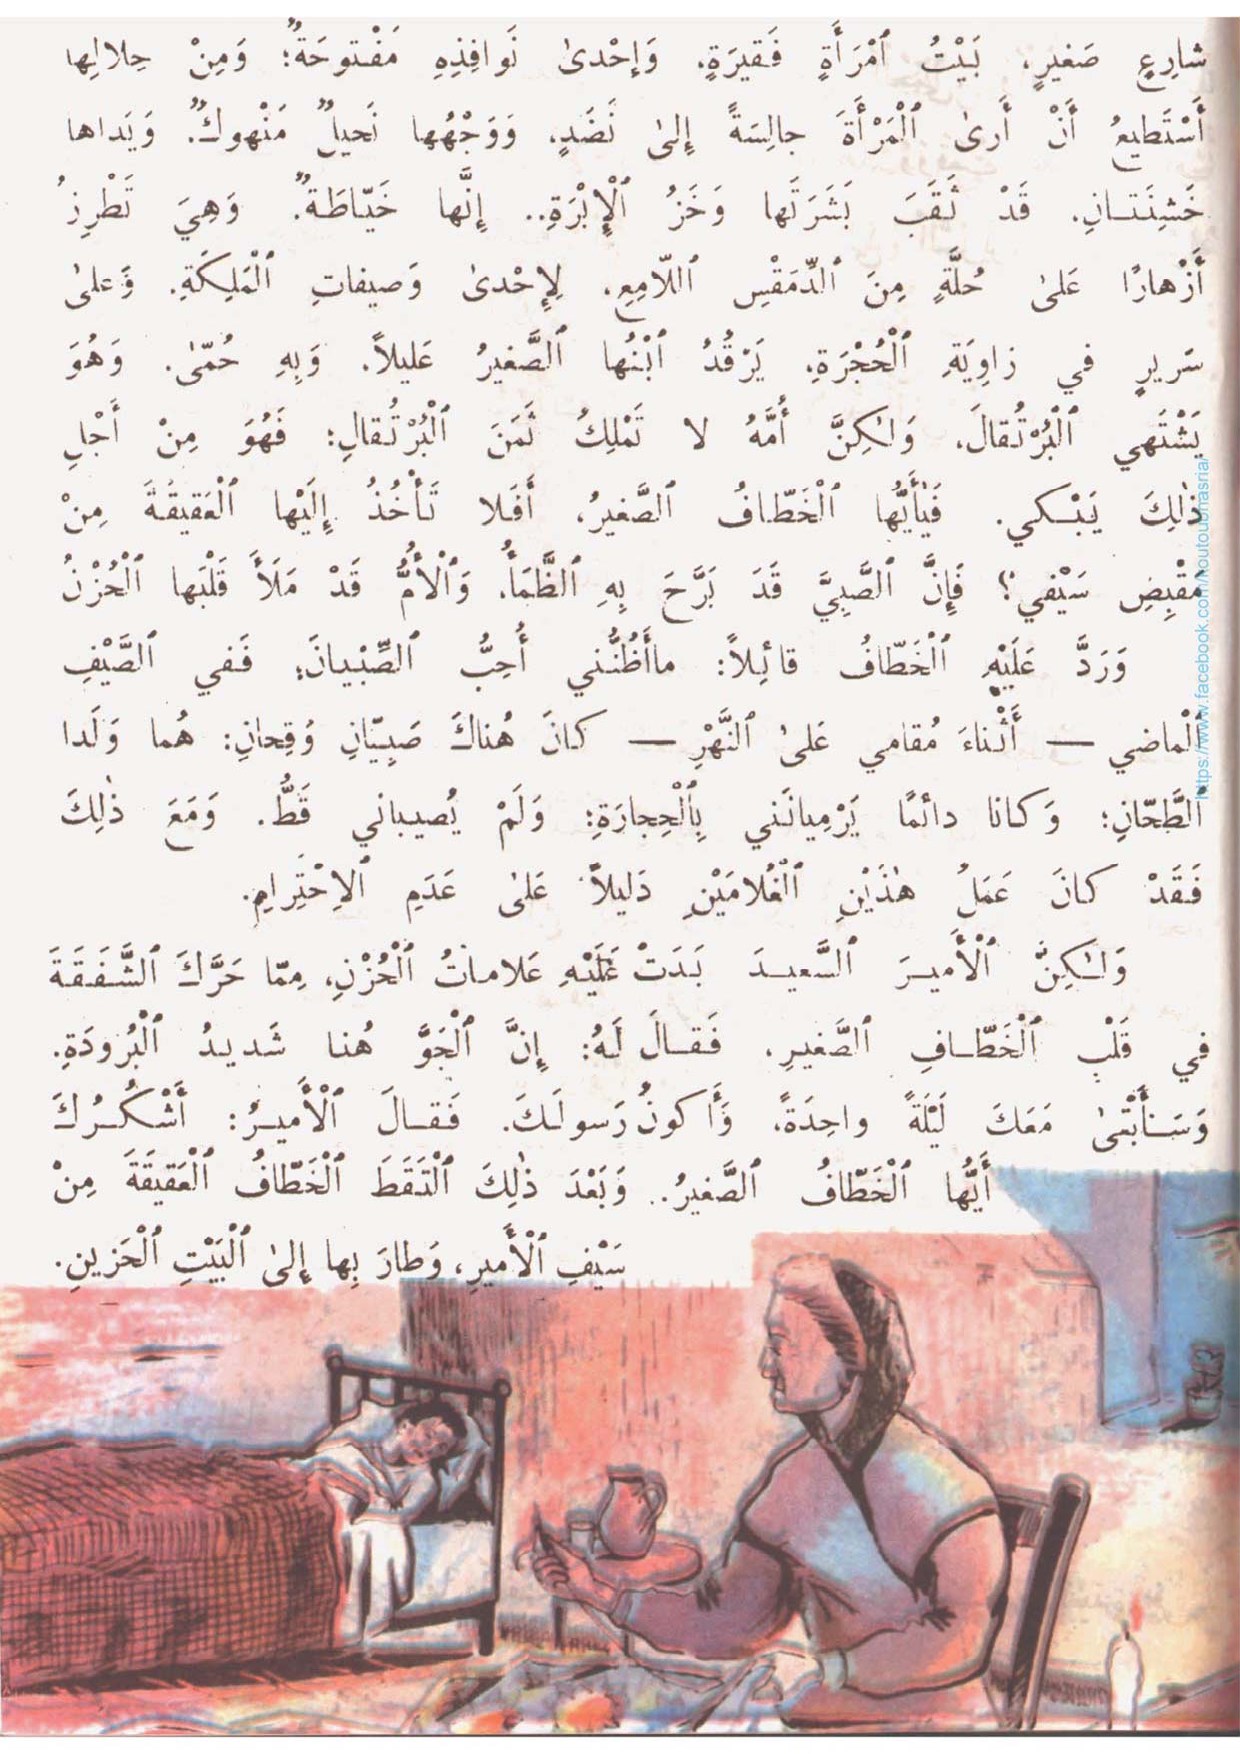 شارِعٍ صَغيرٍ، بَيْتُ ٱمْرَأَةٍ فَقيرَةٍ، وَإِحْدىٰ نَوافِذِهِ مَفْتوحَةٌ؛ وَمِنْ خِلالِها
أَسْتَطيعُ أَنْ أَرىٰ ٱلْمَرْأَةَ جالِسَةً إِلىٰ نَضَدٍ، وَوَجْهُها نَحيلٌ مَنْهوكٌ. وَيَداها
خَشِنَتانِ. قَدْ ثَقَبَ بَشَرَتَها وَخَزُ ٱلْإِبْرَةِ.. إِنَّها خَيّاطَةٌ. وَهِيَ تَطْرِزُ
أَزْهارًا عَلىٰ حُلَّةٍ مِنَ ٱلدِّمَقْسِ ٱللّامِعِ، لِإِحْدىٰ وَصيفاتِ ٱلْمَلِكَةِ. وَعَلىٰ
سَريرٍ في زاوِيَةِ ٱلْحُجْرَةِ، يَرْقُدُ ٱبْنُها ٱلصَّغيرُ عَليلاً، وَبِهِ حُمّىٰ. وَهُوَ
يَشْتَهي ٱلْبُرْتُقالَ، وَلٰكِنَّ أُمَّهُ لا تَمْلِكُ ثَمَنَ ٱلْبُرْتُقالِ؛ فَهُوَ مِنْ أَجْلِ
ذٰلِكَ يَبْكي. فَيٰأَيُّها ٱلْخَطّافُ ٱلصَّغيرُ، أَفَلا تَأْخُذُ إِلَيْها ٱلْعَقيقَةَ مِنْ
مَقْبِضِ سَيْفي؟ فَإِنَّ ٱلصَّبِيَّ قَدَ بَرَّحَ بِهِ ٱلظَّمَأُ، وَٱلْأُمُّ قَدْ مَلَأَ قَلْبَها ٱلْحُزْنُ
وَرَدَّ عَلَيْهِ ٱلْخَطّافُ قائِلاً: ماأَظُنُّني أُحِبُّ ٱلصِّبْيانَ؛ فَفي ٱلصَّيْفِ
ٱلْماضي — أَثْناءَ مُقامي عَلىٰ ٱلنَّهْرِ — كانَ هُناكَ صَبِيّانِ وَقِحانِ: هُما وَلَدا
ٱلطَّحّانِ؛ وَكانا دائمًا يَرْمِيانَني بِٱلْحِجارَةِ؛ وَلَمْ يُصيباني قَطُّ. وَمَعَ ذٰلِكَ
فَقَدْ كانَ عَمَلُ هٰذَيْنِ ٱلْغُلامَيْنِ دَليلاً عَلىٰ عَدَمِ ٱلِاحْتِرامِ.
وَلٰكِنَّ ٱلْأَميرَ ٱلسَّعيدَ بَدَتْ عَلَيْهِ عَلاماتُ ٱلْحُزْنِ، مِمّا حَرَّكَ ٱلشَّفَقَةَ
في قَلْبِ ٱلْخَطّافِ ٱلصَّغيرِ. فَقالَ لَهُ: إِنَّ ٱلْجَوَّ هُنا شَديدُ ٱلْبُرودَةِ.
وَسَأَبْقىٰ مَعَكَ لَيْلَةً واحِدَةً، وَأَكونُ رَسولَكَ. فَقالَ ٱلْأَميرُ: أَشْكُرُكَ
أَيُّها ٱلْخَطّافُ ٱلصَّغيرُ.. وَبَعْدَ ذٰلِكَ ٱلْتَقَطَ ٱلْخَطّافُ ٱلْعَقيقَةَ مِنْ
سَيْفِ ٱلْأَميرِ، وَطارَ بِها إِلىٰ ٱلْبَيْتِ ٱلْحَزينِ.
https://www.facebook.com/koutoubnasria/